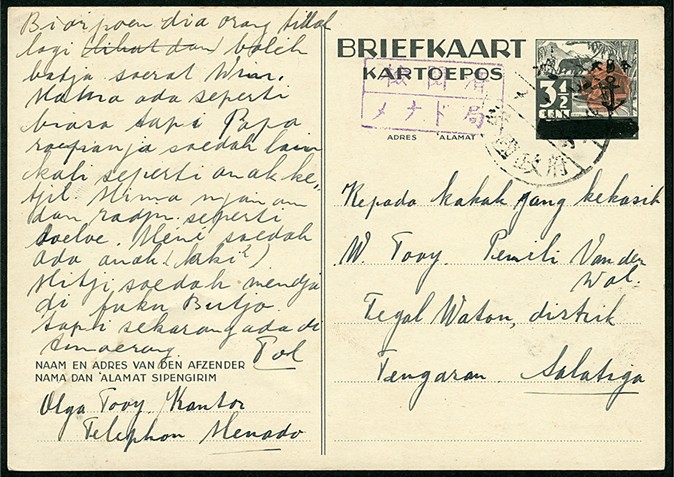 Biarpoen dia orang tidak
lagi lihat dan boleh
batja soerat Wim.
Mama ada seperti
biasa tapi Papa
roepanja soedah lain
kali seperti anak ke-
tjil. Mima
dan seperti
Meni soedah
ada anak (laki?)
Mitji soedah mendja
di
tapi sekarang ada di
Pol
NAAM EN ADRES VAN DEN AFZENDER
NAMA DAN ‛ALAMAT SIPENGIRIM
Olga Tooy / Kantor
Telephon Menado
BRIEFKAART
KARTOEPOS
3½
CENT
検閲済
メナド局
ADRES ‛ALAMAT
政府
Kepada kakak jang kekasih
W. Tooy Pemili Van der
Wal.
Tegal Waton, distrik
Tengaran. Salatiga